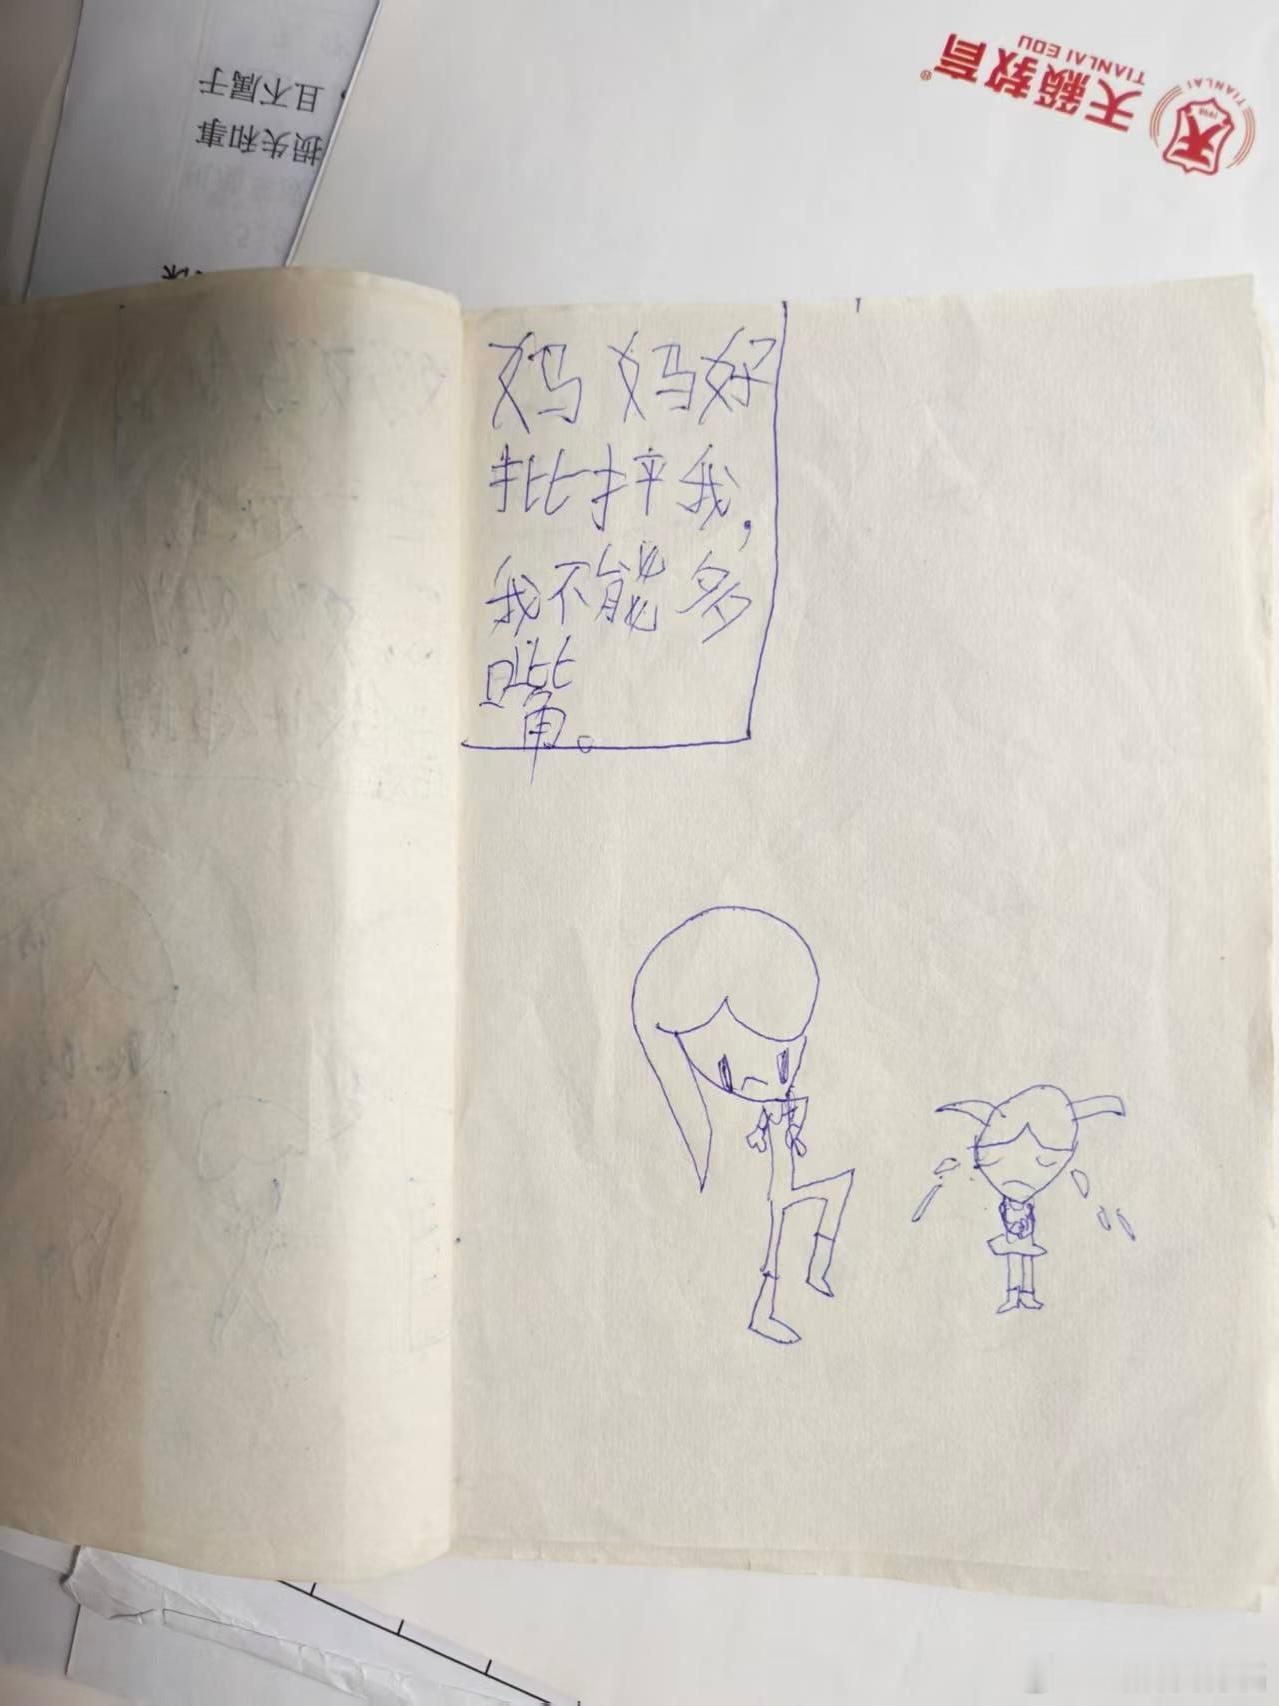 天籁教育®
TIANLAI EDU
TIANLAI
1998
且不属于
损失和事
妈妈好
批抨我，
我不能多
嘴。